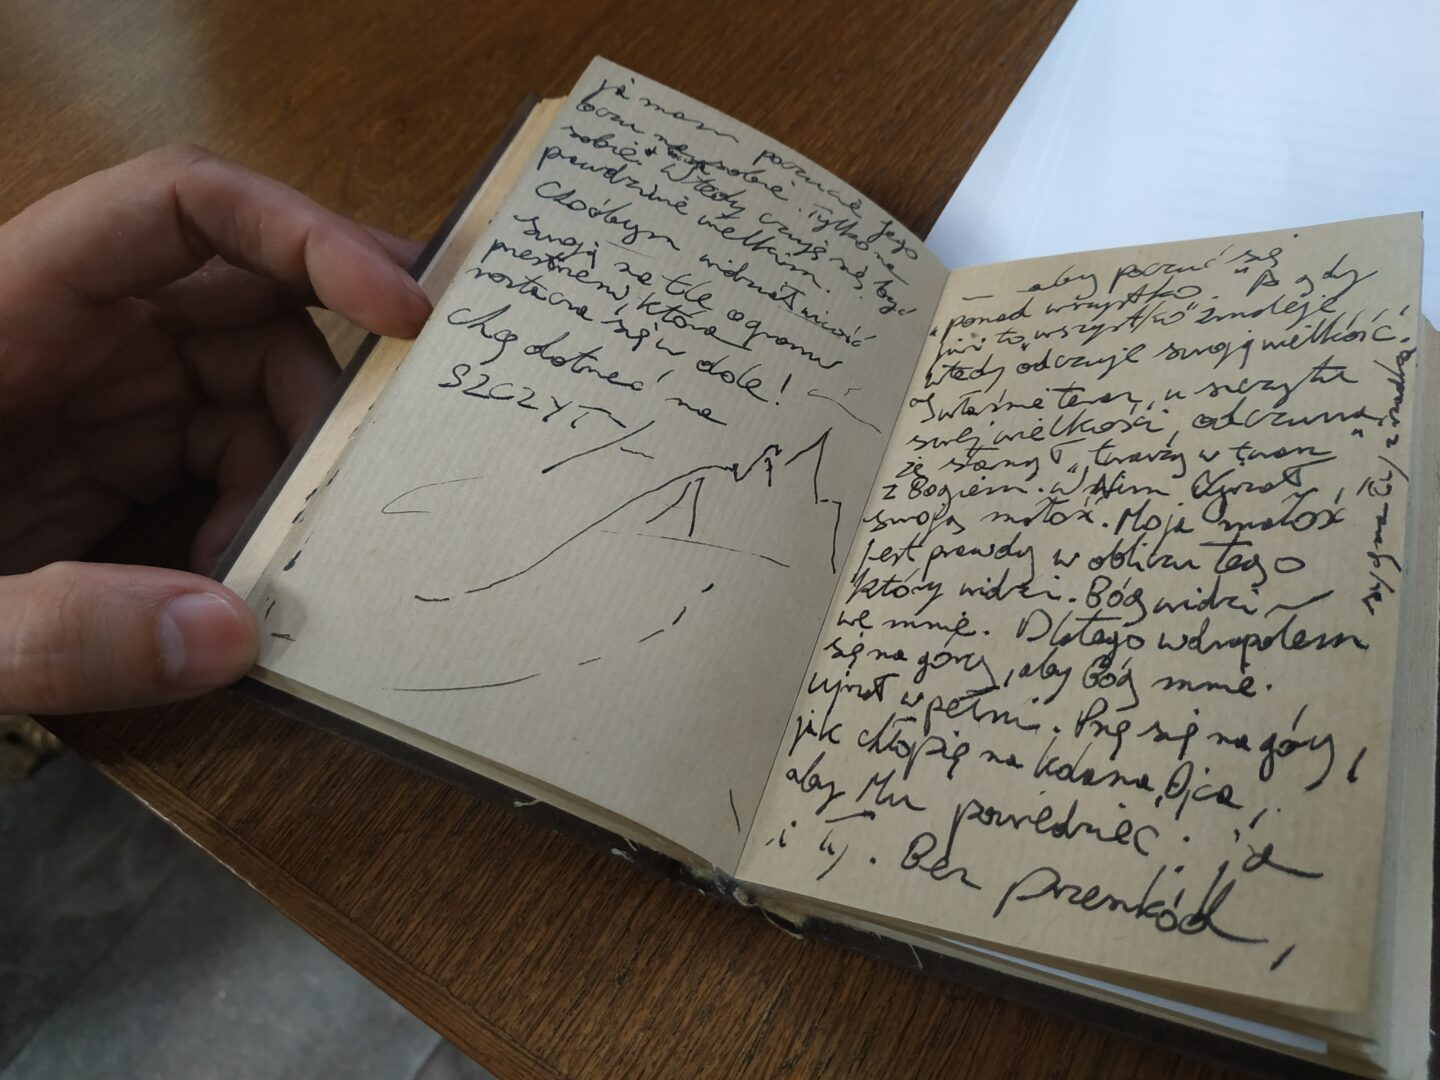 ja mam poczucie Jego
sobie. Tylko na
sobie. Wtedy czuję się być
prawdziwie wielkim.
Choćbym widział
swoją na tle ogromu
przestrzeni, która
roztacza się w dole!
Chcę dotrzeć na
SZCZYT
– aby poczuć się
"ponad wszystko". "Bo gdy
"wszystko" zmaleje
wtedy odczuję swoją wielkość."
I właśnie teraz, u szczytu
swej wielkości, odczuwa,
że stanął "twarzą w twarz"
z Bogiem. W Nim ujrzał
swoją małość. Moja małość
jest prawdą w obliczu tego
który widzi. Bóg widzi
we mnie. Dlatego wdrapałem
się na górę, aby Bóg mnie
ujrzał w pełni. Pnę się na górę,
jak chłopię na kolana Ojca,
aby Mu powiedzieć: ja
i Ty. Bez przeszkód,